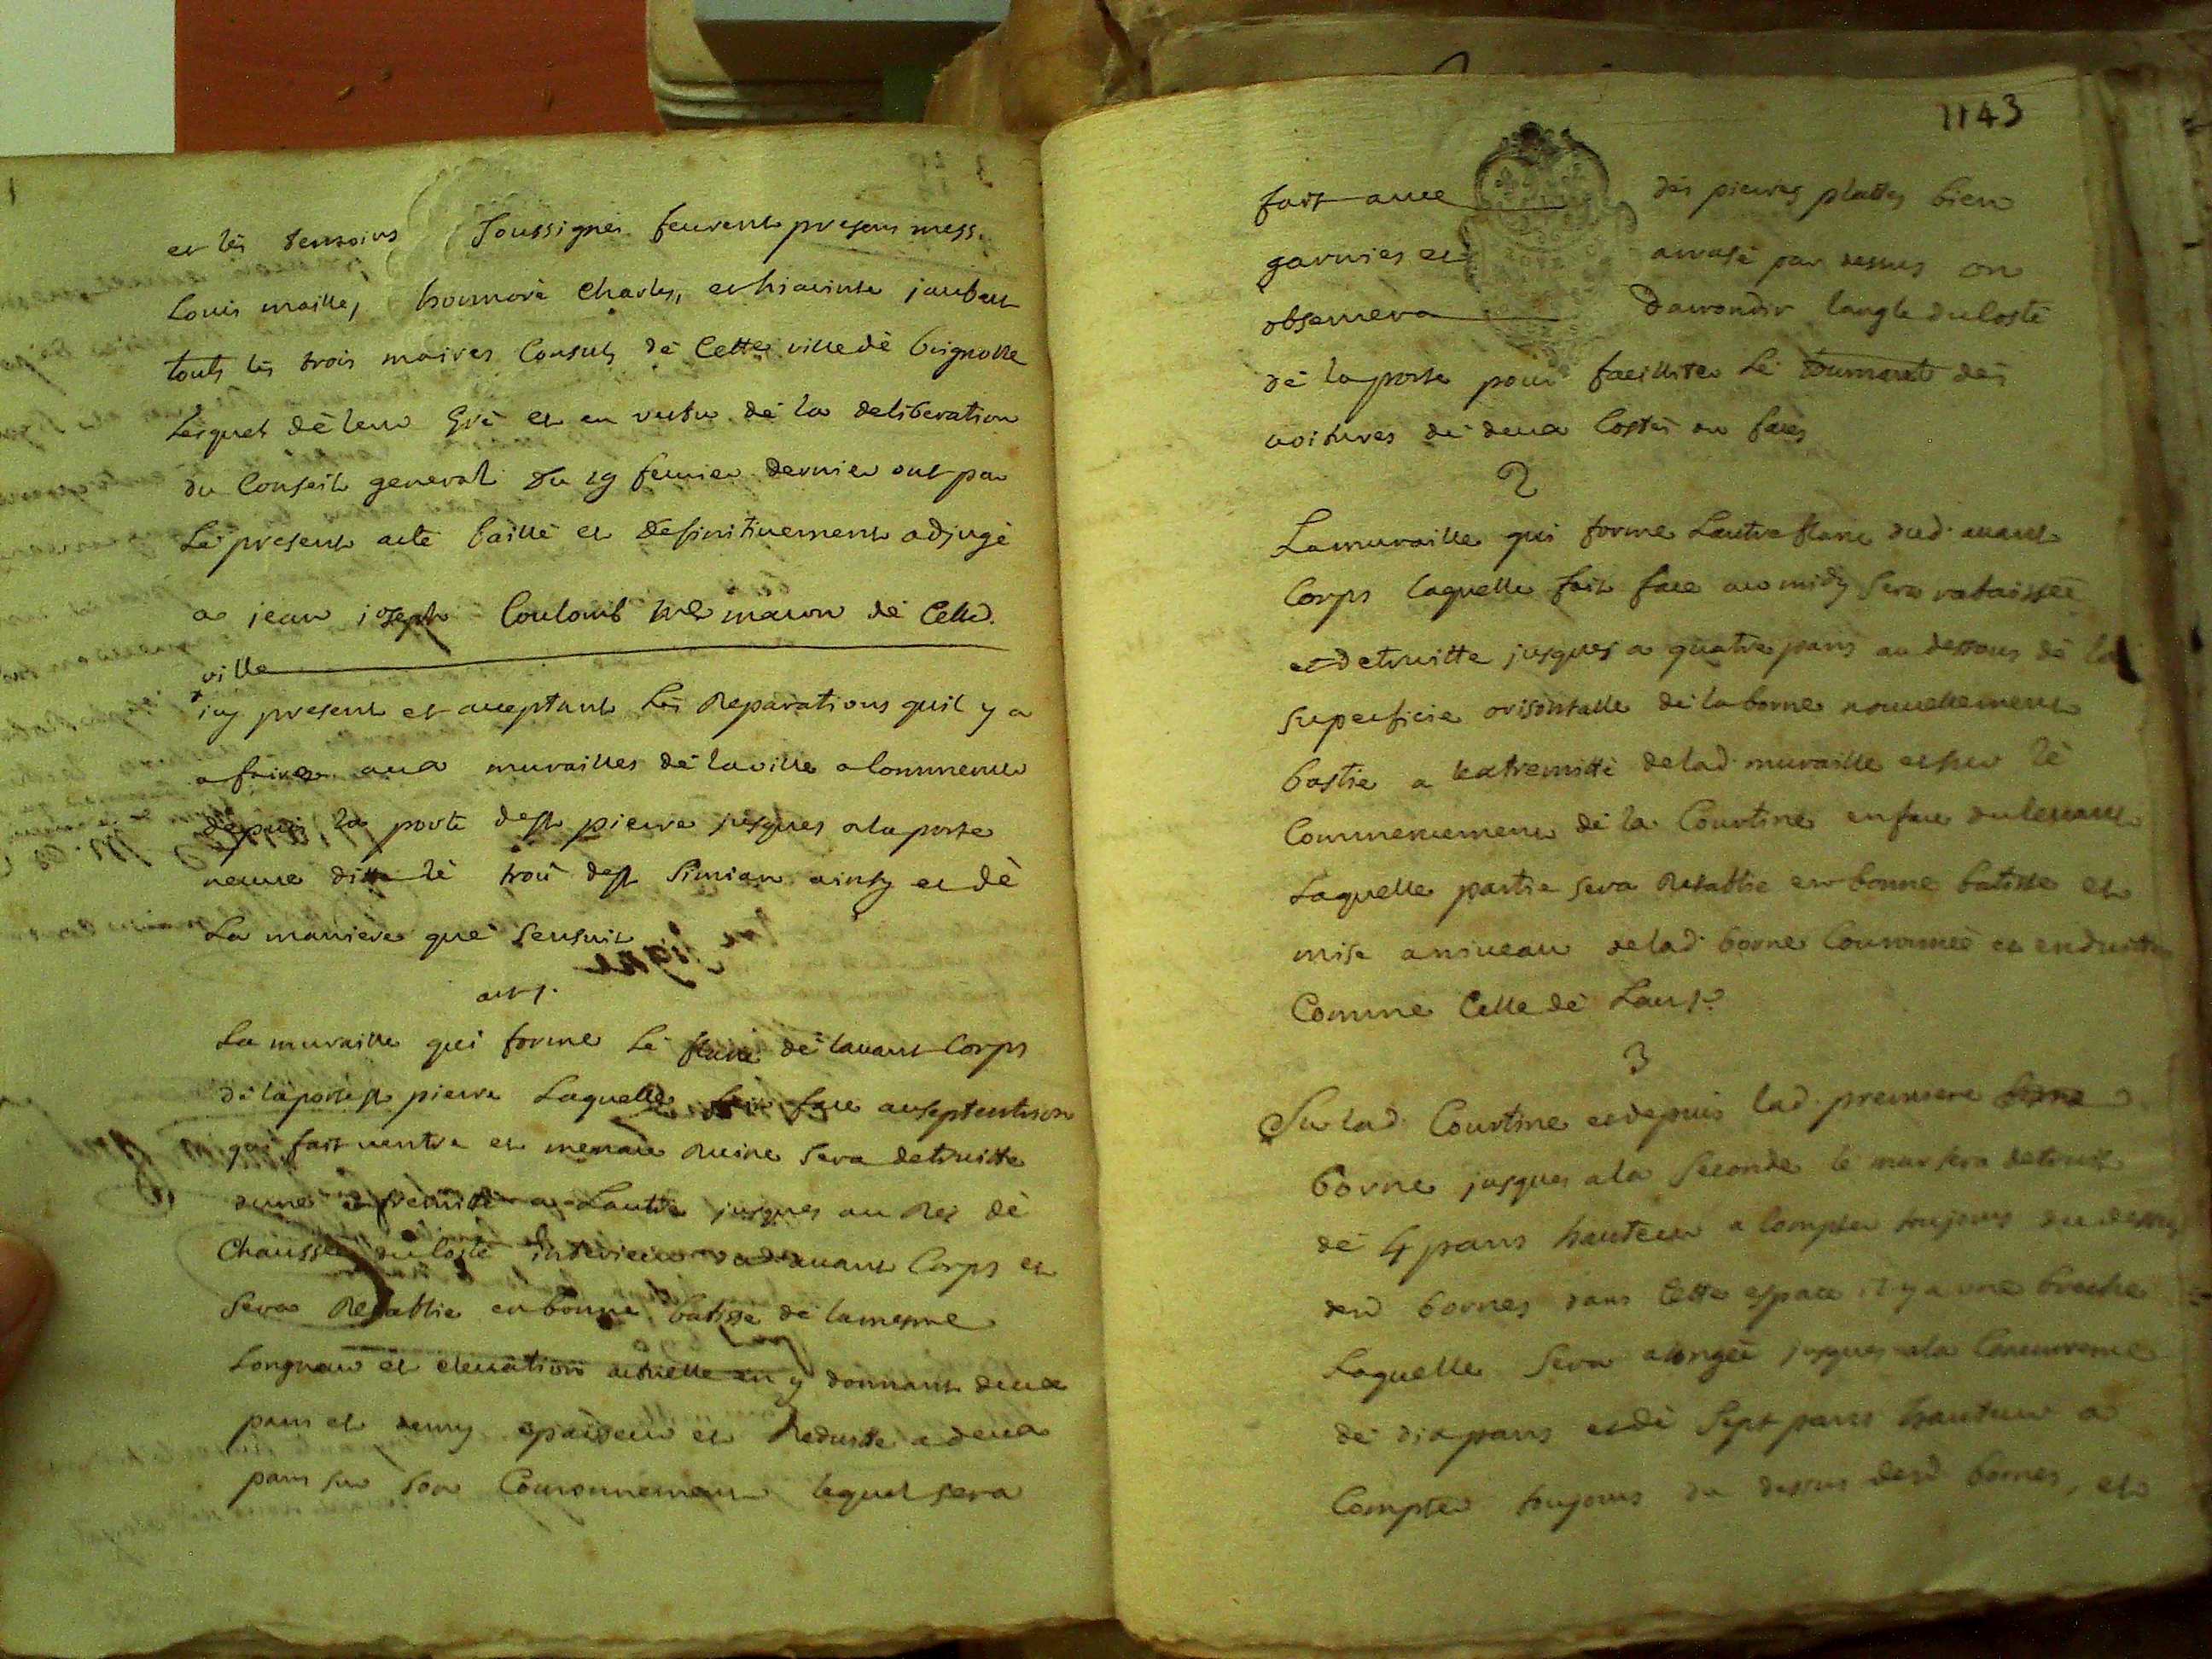 et lès temoins soussignés feurent presens mess.
Louis maille, honnoré Charles, et hiacinte jaubert
touts lès trois maires Consuls dè Cette ville dè brignolle
lesquels dè leur Gré et en vertu dè la deliberation
du Conseil general du 19 feurier dernier ont par
Le present acte baillé et definitiuement adjugé
a jean joseph Coulomb me masson dè Cetted.
ville
icy present et acceptant Lès Reparations quil y a
a faires aux murailles dè la ville a Commencer
depuis la porte de st pierre jusques ala porte
neuue ditte lè trou de st Simian ainsy et dè
La maniere què sensuit
art 1.
La muraille qui forme Lè flanc dè lauant Corps
dè la porte st pierre Laquelle fait face auseptentrion
qui fait uentre et menace Ruine sera detruitte
dune extremitté a Lautre jusques au Rez dè
Chaussée du Costé interieur dud. auant Corps et
sera Retablie en bonne batisse dè la mesme
Longueur et eleuation actuelle en y donnant deux
pans et demy epaisseur et Reduitte a deux
pans sur son Couronnement lequel sera
1143
fait auec des pierres plattes bien
garnies et arrasé par dessus on
obseruera darrondir langle du Costé
dè la porte pour facilliter Lè tournant des
uoitures dè deux Costés ou faces
2
La muraille qui forme Lautre flanc dud. auant
Corps laquelle fait face au midy sera rabaissée
et detruitte jusques a quatre pans au dessous dè la
superficie orisontalle dè la borne nouuellement
bastie a lextremitté de lad. muraille et sur lè
Commencement dè la Courtine en face du leuant
Laquelle partie sera Retablie en bonne batisse et
mise a niueau de lad. borne Couronnée et enduitte
Comme Celle dè Lart 1er
3
Sur lad. Courtine et depuis lad. premiere borne
borne jusques ala seconde lè mur sera detruit
dè 4 pans hauteur a Compter toujours du dessus
desd bornes dans Cette espace il y a une breche
Laquelle sera alongée jusques ala Concurrence
dè dix pans et dè sept pans hauteur a
Compter toujours du dessus desd bornes, et